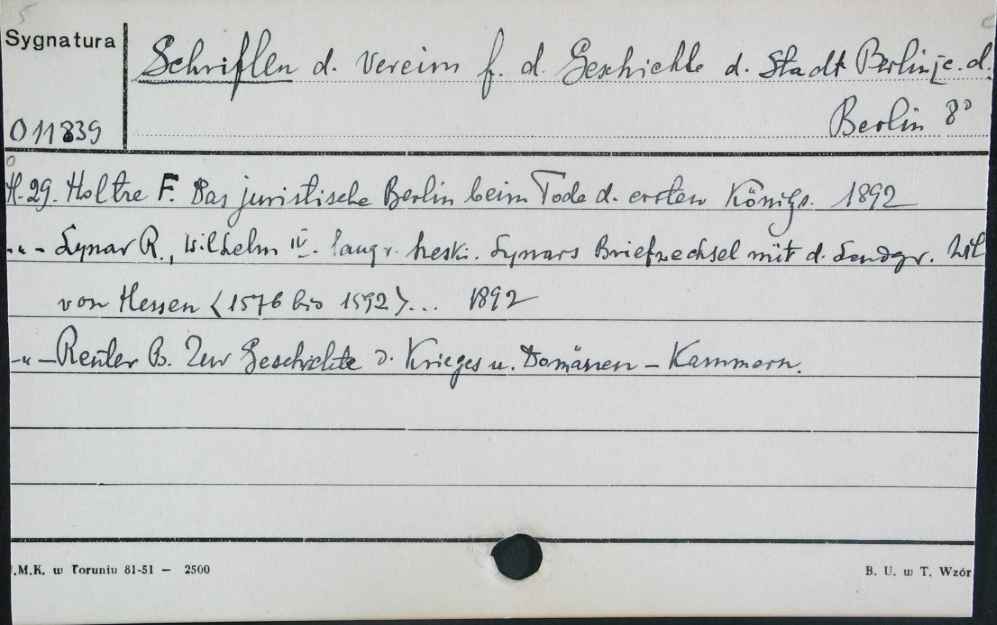 5
Sygnatura
Schriften d. Vereins f. d. Geschichte d. Stadt Berlin j. c. d.
011839
Berlin 8°
H. 29. Holtze F. Das juristische Berlin beim Tode d. ersten Königs. 1892
-„- Lynar R., Wilhelm IV. langr. hesk. Lynars Briefwechsel mit d. Landgr. Wil
von Hessen <1576 bis 1592>... 1892
-„- Reuter B. Zur Geschichte d. Krieges u. Domänen-Kammern.
.M.K. w Toruniu 81-51 — 2500
B. U. w T. Wzór